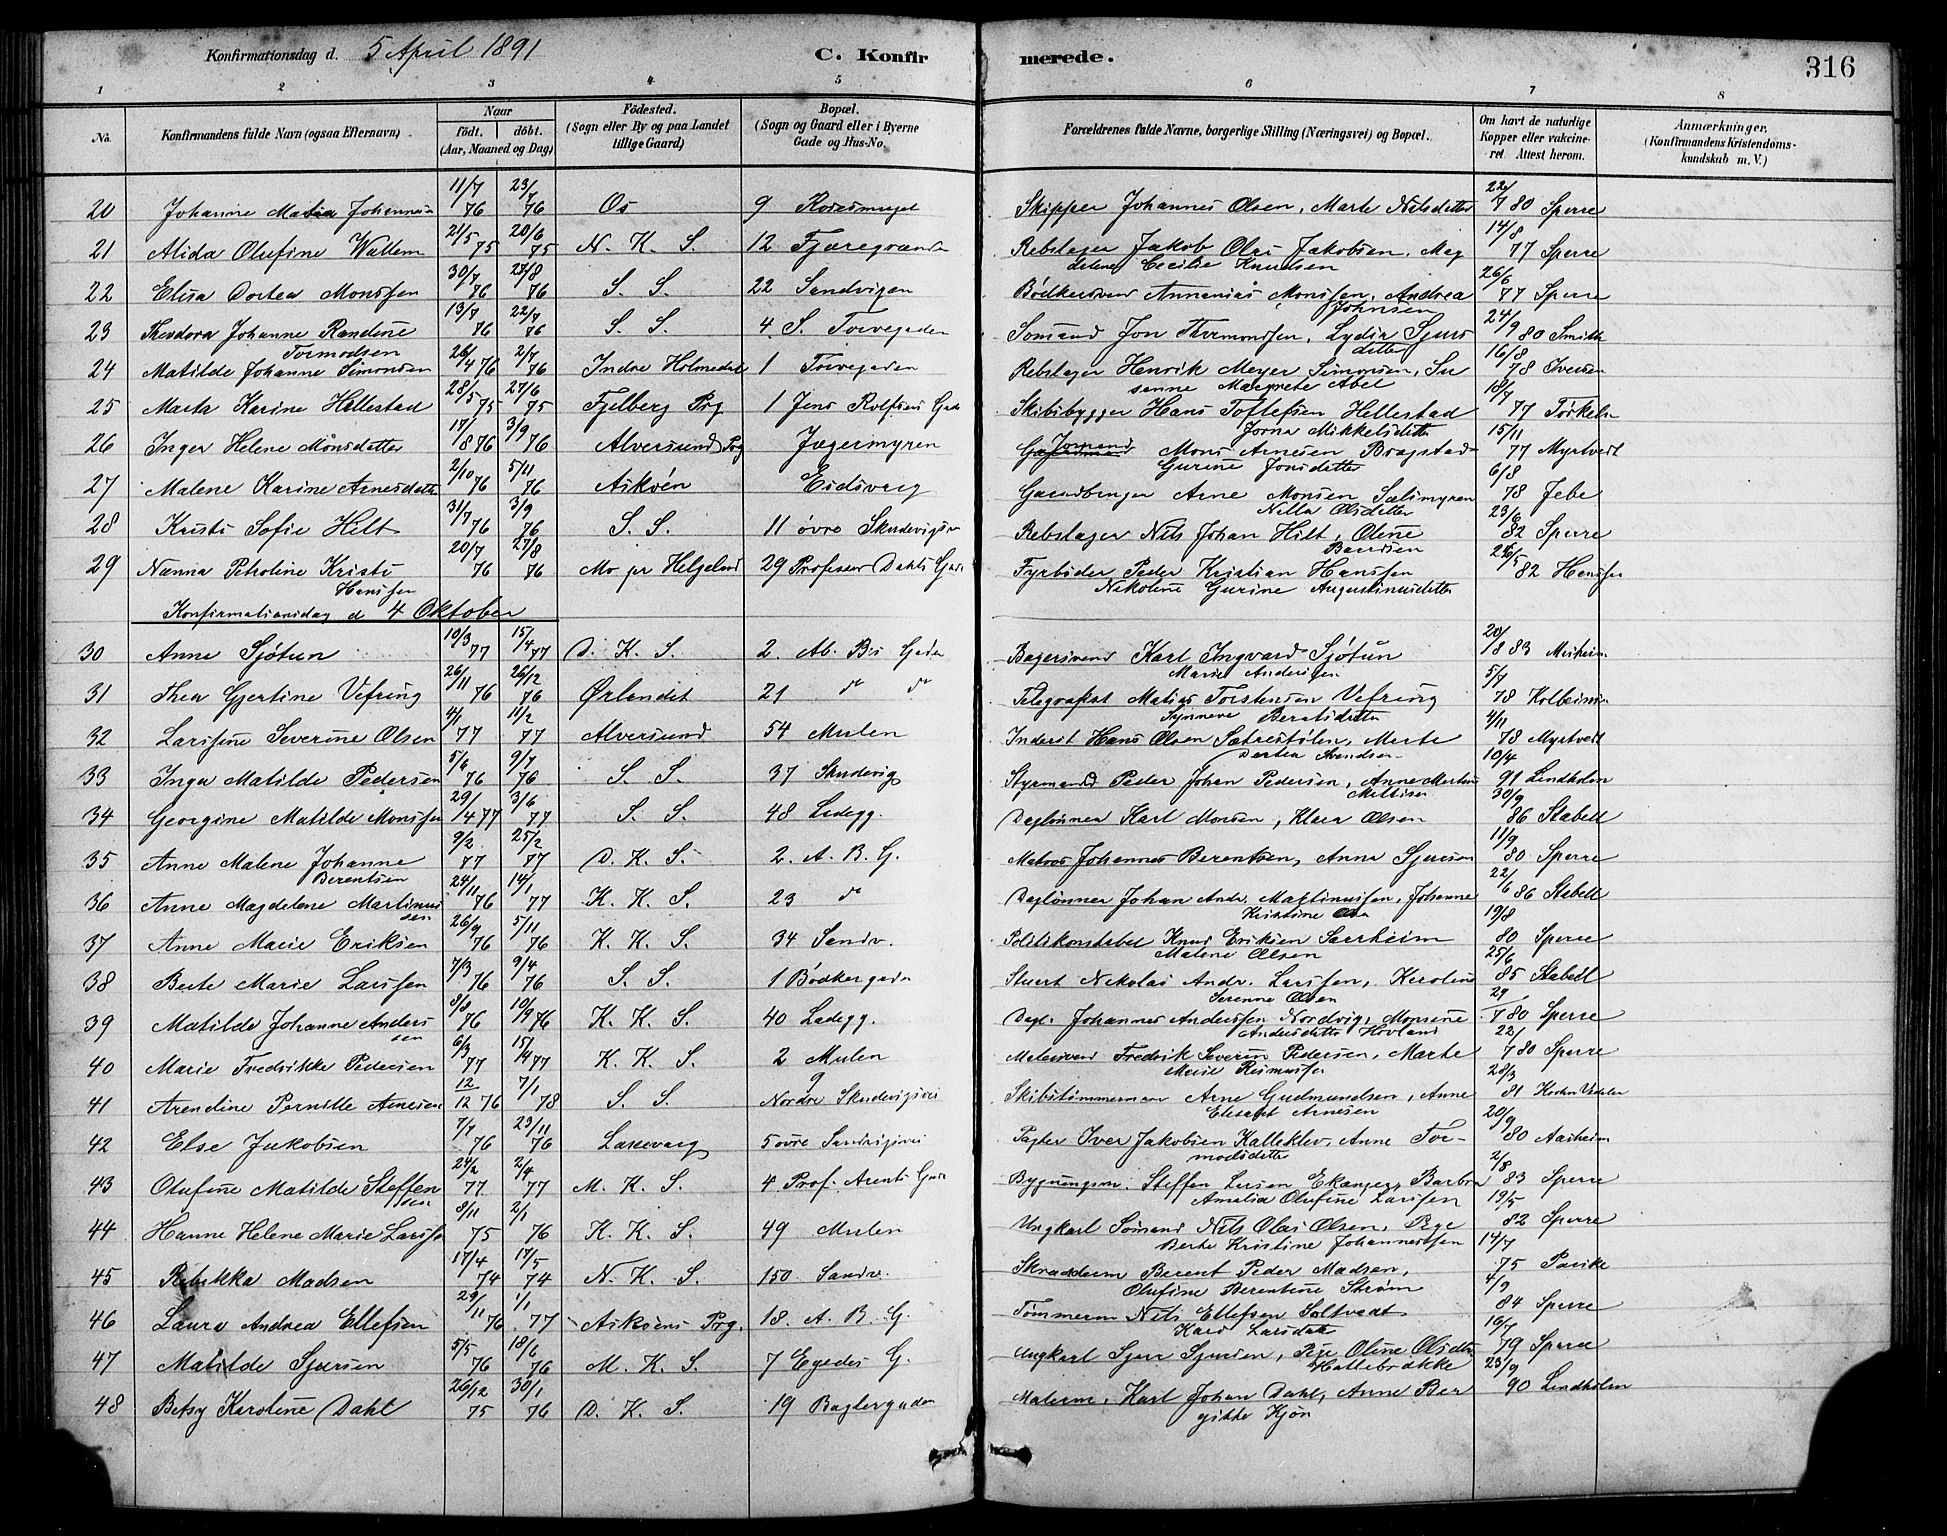 Konfirmationsdag d. 5 April 1891 C. Konfirmerede. 316
1 2 3 4 5 6 7 8
No. Konfirmandens fulde Navn (ogsaa Efternavn). Naar født. døbt. (Aar, Maaned og Dag) Fødested. (Sogn eller By og paa Landet tillige Gaard) Bopæl. (Sogn og Gaard eller i Byerne Gade og Hus-No. Forældrenes fulde Navne, borgerlige Stilling (Næringsvei) og Bopæl. Om havt de naturlige Kopper eller vaccineret Attest herom. Anmærkninger. (Konfirmandens Kristendomskundskab m. V.)
20 Johanne Johannesen 11/7 76 23/7 76 Os 9 Skipper Johannes Olsen, Marte Nilsdatter 22/7 80 Sperre
21 Alida Olufine Wallem 21/5 75 20/6 75 N. K. S. 12 Fjæregranden Rebslager Jakob Olai Jakobsen, Mag
delene Cecilie Knudsen 14/8 77 Sperre
22 Elisa Dortea Monsen 30/7 76 27/8 76 S. S. 22 Sandvigen Bødkersvend Annanias Monsen, Andrea
Johnsen 26/6 77 Sperre
23 Theodora Johanne Randine
Tormodsen 13/7 76 22/7 76 S. S. 4 S. Torvegaden Sømand Jon Thormodsen, Lydia Sjurs
datter 24/9 80 Smith
24 Matilde Johanne Simonsen 26/4 76 2/7 76 Indre Holmedal 1 Torvegaden Rebslager Henrik Meyer Simonsen, Su
sanne Margrete Abel 16/8 78 Iversen
25 Marta Karine Hellestad 28/5 75 27/6 75 Fjelberg Prg 1 Jens Rolfsens Gade Skibsbygger Hans Toflefsen Hellestad
Jorna Mikkelsdatter 18/7 77
26 Inger Helene Monsdatter 17/8 76 3/9 76 Alversund Prg Jægermyren Mons Arnesen Bragstad
Gurine Jonsdatter 15/11 77 Myrtvedt
27 Malene Karine Arnesdatter 2/10 76 5/11 76 Askøen Eidsvaag Gaardbruger Arne Monsen Sælsmyren
Nilla Olsdatter 6/8 78 Jebe
28 Kristi Sofie Hilt 31/7 76 3/9 76 S. S. 11 øvre Skudevigsv Rebslager Nils Johan Hilt, Oline
23/6 82 Sperre
29 Nanna Petroline Kristi
Hansen 20/7 76 27/8 76 Mo pr Helgeland 29 Professor Dahls Gade Fyrbøder Peder Kristian Hansen
Nikoline Gurine Augustinusdatter 82 Hansen
Konfirmationsdag d 4 Oktober
30 Anne Sjøtun 10/3 77 15/4 77 D. K. S. 2. Ab. B's Gade Bagersvend Karl Ingvard Sjøtun
Marie Andersen 83
31 Thea Gjertine Vefring 26/11 76 26/12 76 Ørlandet 21 do do Telegrafist Matias Torstensen Vefring
Synneve Berntsdatter 5/7 78
32 Larsine Severine Olsen 4/1 77 11/2 77 Alversund 54 Mulen Inderst Hans Olsen Sætrestølen, Marte
Dortea Svendsen 4/11 78 Myrtvedt
33 Inga Matilde Pedersen 5/6 76 9/7 76 S. S. 37 Skudevig Styrmand Peder Johan Pedersen, Anne
10/4 91 Lindholm
34 Georgine Matilde Monsen 29/14 77 3/6 77 S. S. 48 Ladegg. Daglønner Karl Monsen, Klara Olsen 30/9 86 Stabell
35 Anne Malene Johanne
Berentsen 9/2 77 25/2 77 D. K. S. 2. A. B. G. Matros Johannes Berentsen, Anna Sjursen 11/9 80 Sperre
36 Anne Magdelene Martinus
sen 24/11 76 14/1 77 K. K. S. 23 do Daglønner Johan Andr. Martinussen, Johanne
Kristine 22/6 86 Stabell
37 Anne Marie Eriksen 26/9 76 5/11 76 K. K. S. 34 Sandv. Politikonstabel Knud Eriksen Saerheim
Malene Olsen 19/8 80 Sperre
38 Berte Marie Larsen 7/3 76 9/4 76 S. S. 1 Bødkergaden Stuert Nikolai Andr. Larsen, Karoline
Serenne Olsen 25/6 85 Stabell
39 Matilde Johanne Anders
sen 8/8 76 10/9 76 K. K. S. 40 Ladegg. Dagl. Johannes Andersen Nordvig, Monsine
Andersdatter Hovland 29/7 80 Sperre
40 Marie Fredrikke Pedersen 6/3 77 15/4 77 K. K. S. 2 Mulen Malersvend Fredrik Severin Pedersen, Marte
Marie Rasmussen 22/7 80 Sperre
41 Arendine Pernille Arnesen 12/12 76 7/1 78 S. S. 9
Nordre Skudevigsvei Skibstømmerman Arne Gudmundsen, Anne
Elisabet Arnesen 28/3 81
42 Else Jakobsen 7/7 76 23/11 76 Laxevaag 5 øvre Sandvigsvei Pagter Iver Jakobsen Kalleklev, Anne Tor-
modsdatter 20/9 80 Aarheim
43 Olufine Matilde Steffen
sen 24/2 77 2/4 77 M. K. S. 4 Prof. Arents Gade Bygningsm. Steffen Larsen Ekanger, Barbra
Amalia Olufine Larsen 2/8 83 Sperre
44 Hanne Helene Marie Larsen 8/11 75 2/1 76 K. K. S. 49 Mulen Ungkarl Sømand Nils Olai Olsen, Pige
Berte Kristine Johannessen 19/5 82 Sperre
45 Rebekka Madsen 17/4 74 17/5 74 N. K. S. 150 Sandv. Skræderm Berent Peder Madsen,
Olufine Berentine Strøm 14/7 75
46 Laura Andrea Ellefsen 29/11 76 1/1 77 Askøens Prg. 18. A. B. G. Tømmerm Nils Ellefsen Soltvedt
Kari Larsdatter 4/9 84 Sperre
47 Matilde Sjursen 5/5 76 18/6 76 M. K. S. 7 Egedes G. Ungkarl Sjur Sjursen, Pige Oline Olsdtr
Hallebrække 16/7 79 Sperre
48 Betsy Karoline Dahl 26/12 75 30/1 76 D. K. S. 19 Baglergaden Malerm. Karl Johan Dahl, Anne Ber
gitte Kjøn 23/9 90 Lindholm